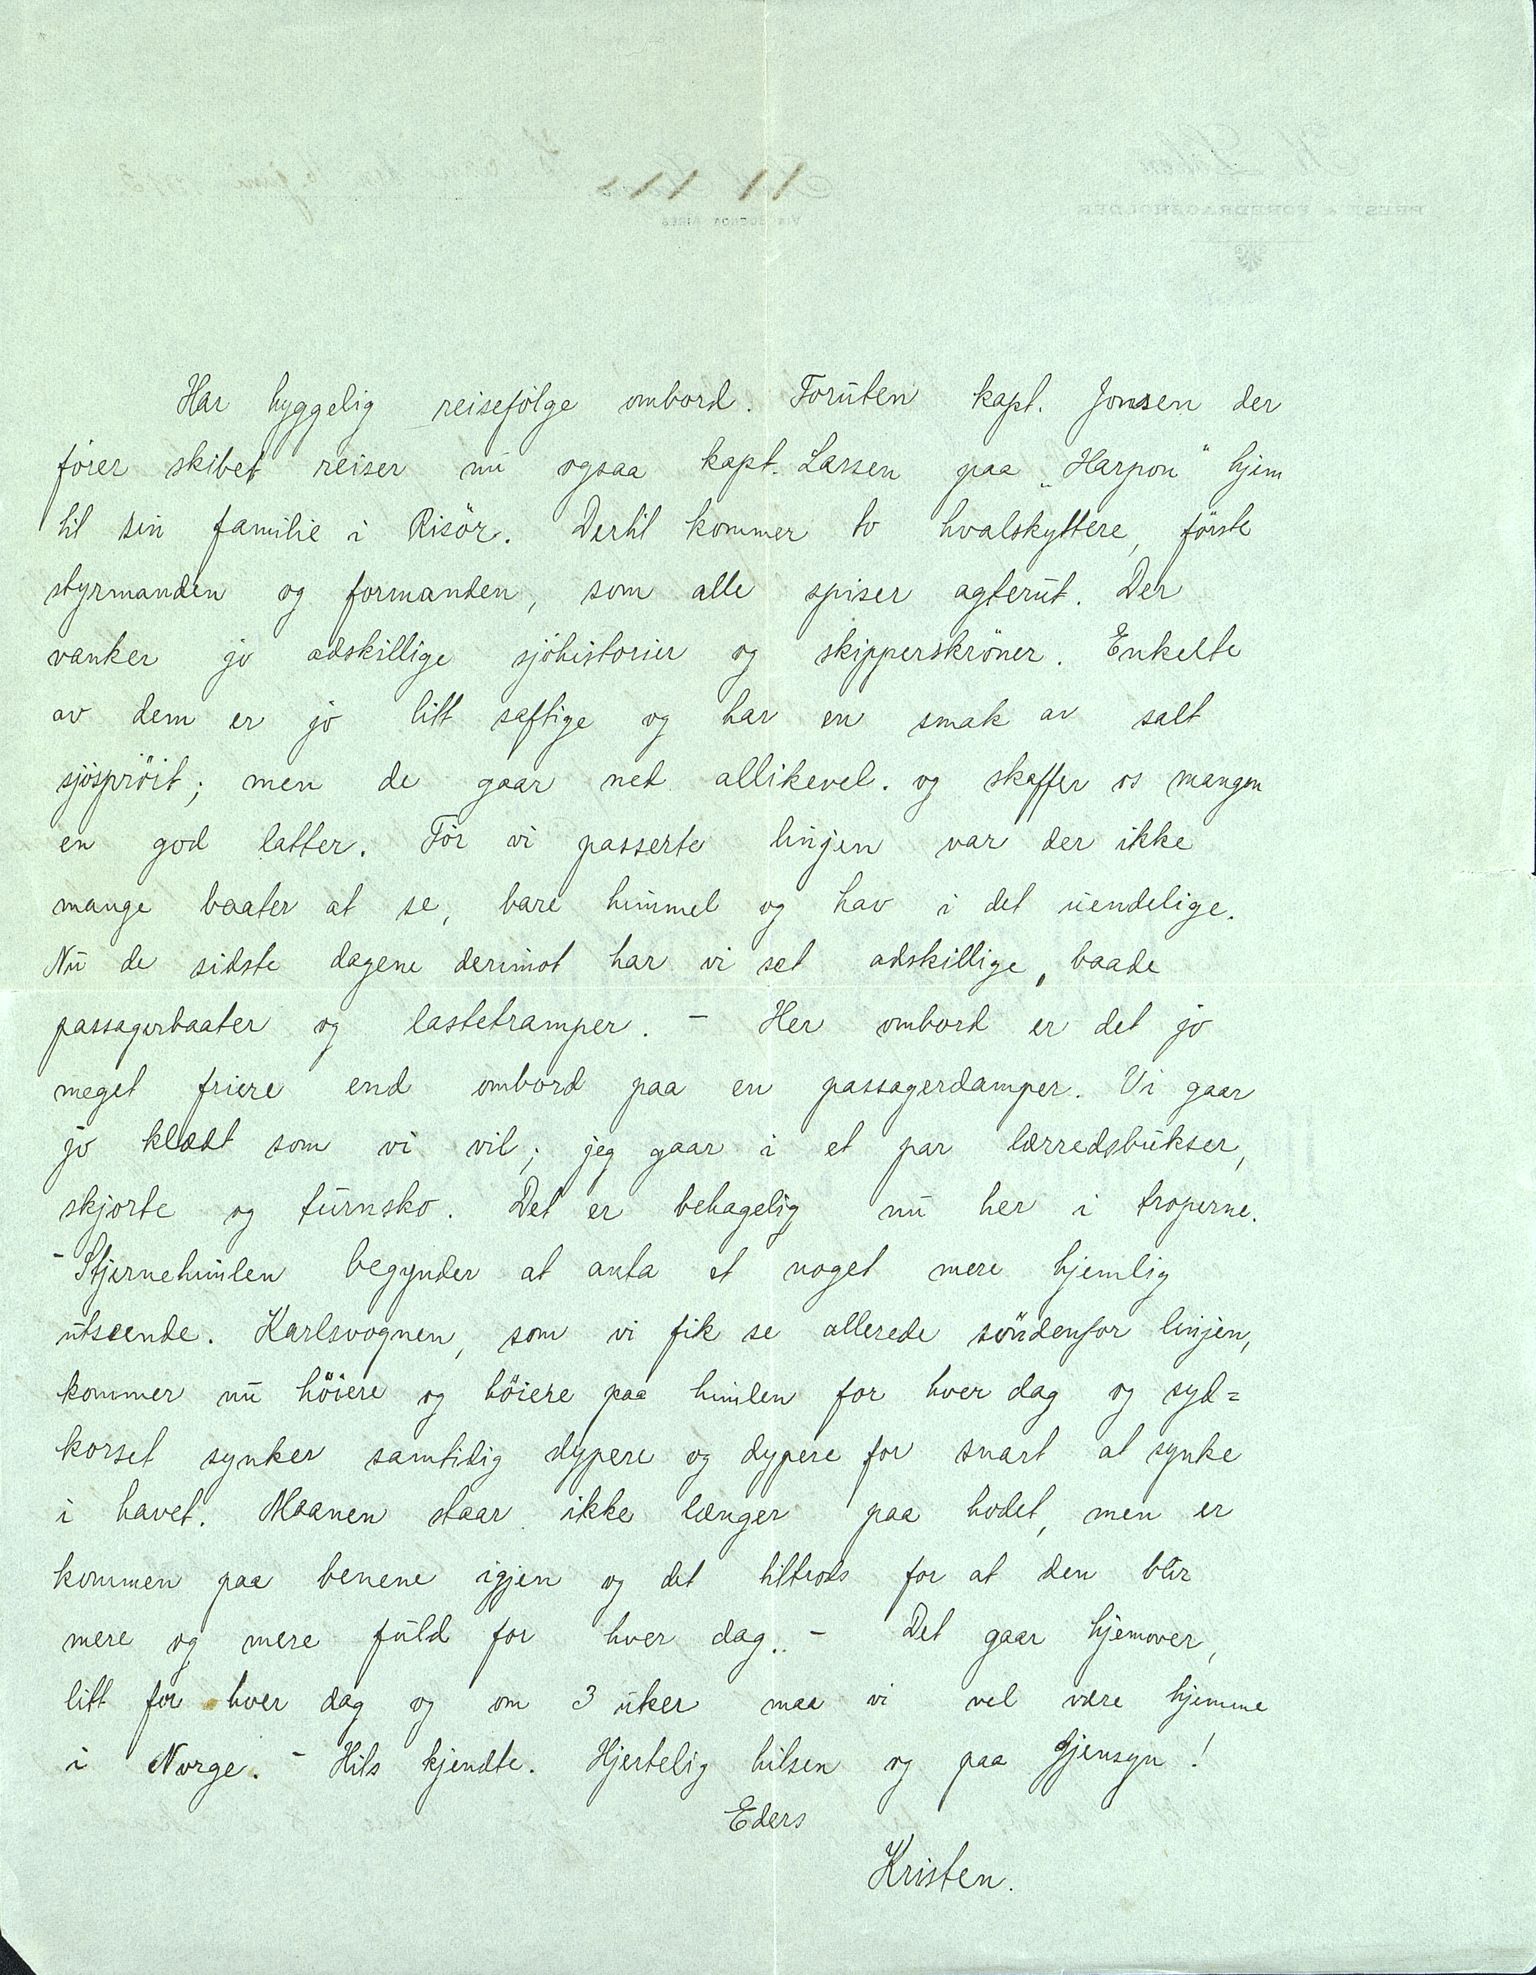 Har hyggelig reisefölge ombord. Foruten kapt. Jonsen der
förer skibet reiser nu ogsaa kapt. Larsen paa „Harpon" hjem
til sin familie i Risör. Dertil kommer to hvalskyttere, förste
styrmanden og formanden, som alle spiser agterut. Der
vanker jo adskillige sjöhistorier og skipperskröner. Enkelte
av dem er jo litt saftige og har en smak av salt
sjöspröit; men de gaar ned allikevel. og skaffer os mangen
en god latter. För vi passerte linjen var der ikke
mange baater at se, bare himmel og hav i det uendelige.
Nu de sidste dagene derimot har vi set adskillige, baade
passagerbaater og lastetramper. – Her ombord er det jo
meget friere end ombord paa en passagerdamper. Vi gaar
jo klædt som vi vil; jeg gaar i et par lærredsbukser,
skjorte og turnsko. Det er behagelig nu her i troperne.
– Stjernehimlen begynder at anta et noget mere hjemlig
utseende. Karlsvognen, som vi fik se allerede söndenfor linjen,
kommer nu höiere og höiere paa himlen for hver dag og syd=
korset synker samtidig dypere og dypere for snart at synke
i havet. Maanen staar ikke længer paa hodet, men er
kommen paa benene igjen og det tiltrods for at den blir
mere og mere fuld for hver dag. – Det gaar hjemover,
litt for hver dag og om 3 uker maa vi vel være hjemme
i Norge. – Hils kjendte. Hjertelig hilsen og paa gjensyn!
Eders
Kristen.